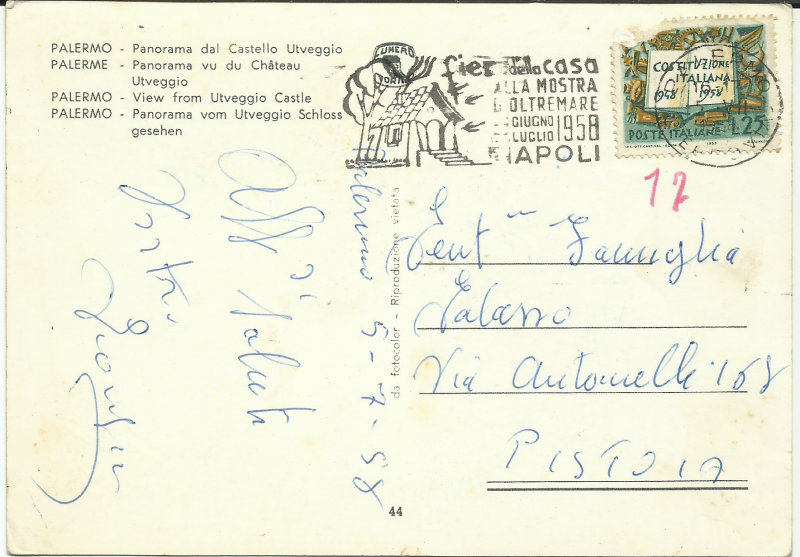 PALERMO - Panorama dal Castello Utveggio
PALERME - Panorama vu du Château
Utveggio
PALERMO - View from Utveggio Castle
PALERMO - Panorama vom Utveggio Schloss
gesehen
fiera della casa
ALLA MOSTRA
D'OLTREMARE
GIUGNO
LUGLIO 1958
NAPOLI
COSTITUZIONE
ITALIANA
1948 1958
POSTE ITALIANE L.25
17
Palermo 5-7-58
Aff.i saluti
Vostri
da fotocolor - Riproduzione vietata
Gent.ma Famiglia
Via Antonelli 168
PISTOIA
44